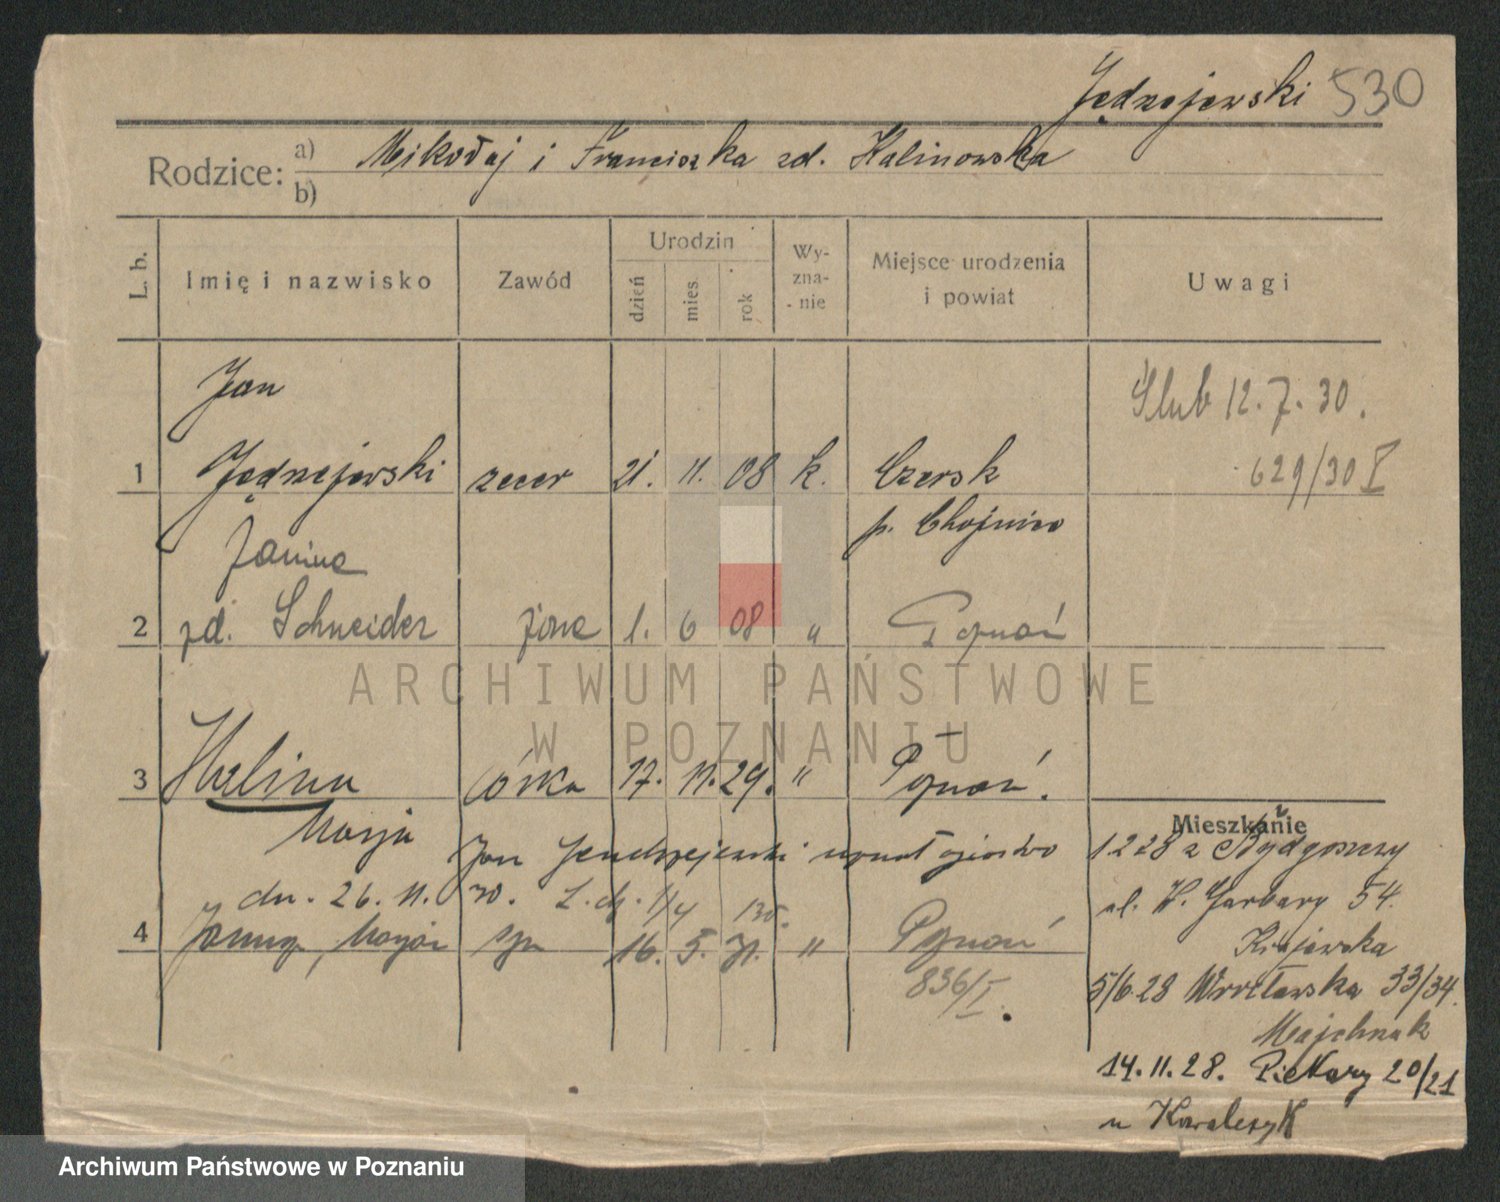 Jędrzejewski 530
Rodzice: a) Mikołaj i Franciszka zd. Kalinowska
b)
L. b. Imię i nazwisko Zawód Urodzin dzień mies. rok Wy-zna-nie Miejsce urodzenia i powiat Uwagi
Jan
Ślub 12.7.30.
1 Jędrzejewski zecer 21. 11. 08 k. Czersk
629/30 I
p. Chojnice
Janina
2 zd. Schneider żona 1. 6 08 " Poznań
ARCHIWUM PAŃSTWOWE
W POZNANIU
3 Halina córka 17. 11. 29. " Poznań.
Mieszkanie
Marja Jan uznał ojcostwo
1.2 28 z Bydgoszczy
dn. 26. 11. 30.
ul. W. Garbary 54.
4 syn 16. 5. 31. " Poznań
Krajewska
836/I.
5/6.28 Wrocławska 33/34.
Majchrzak
14.11.28. Piekary 20/21
u Kowalczyk
Archiwum Państwowe w Poznaniu